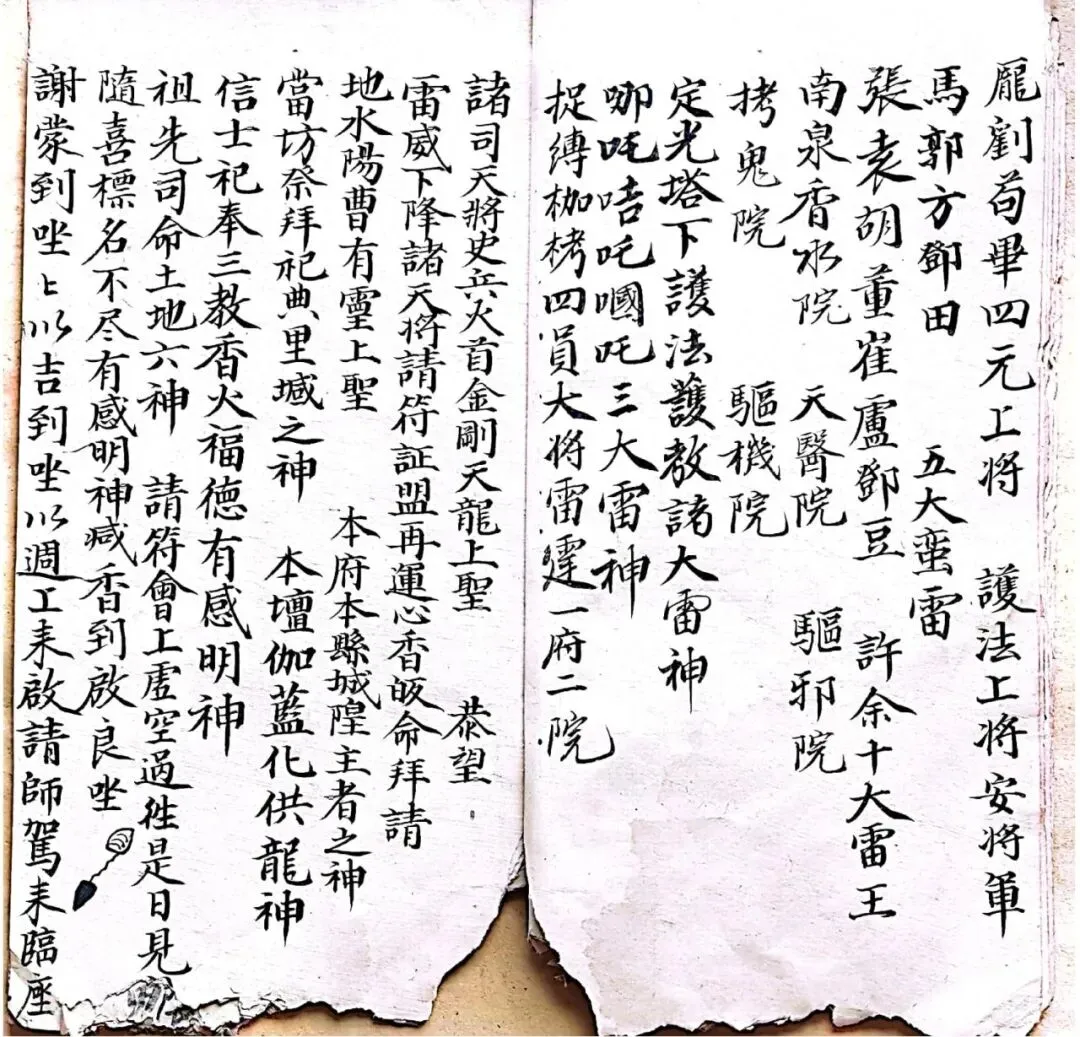 龐劉苟畢四元上将　護法上将安将軍
馬郭方鄧田　五大蛮雷
張袁胡董崔盧鄧豆　許余十大雷王
南泉香水院　天醫院　驅邪院
拷鬼院　驅機院
定光塔下護法護教諸大雷神
哪吒咭吒嘓吒三大雷神
捉縛枷栲四員大将雷霆一府二院
諸司天將史兵火首金剛天龍上聖　恭望
雷威下降諸天将請符証盟再運心香皈命拜請
地水陽曹有靈上聖　本府本縣城隍主者之神
當坊祭拜祀典里域之神　本壇伽藍化供龍神
信士祀奉三教香火福德有感明神
祖先司命土地六神　請符會上虛空過徃是日見
隨喜標名不尽有感明神䐶香到啟良㘴
謝蒙到㘴〻以吉到㘴以週工耒啟請師駕耒臨座